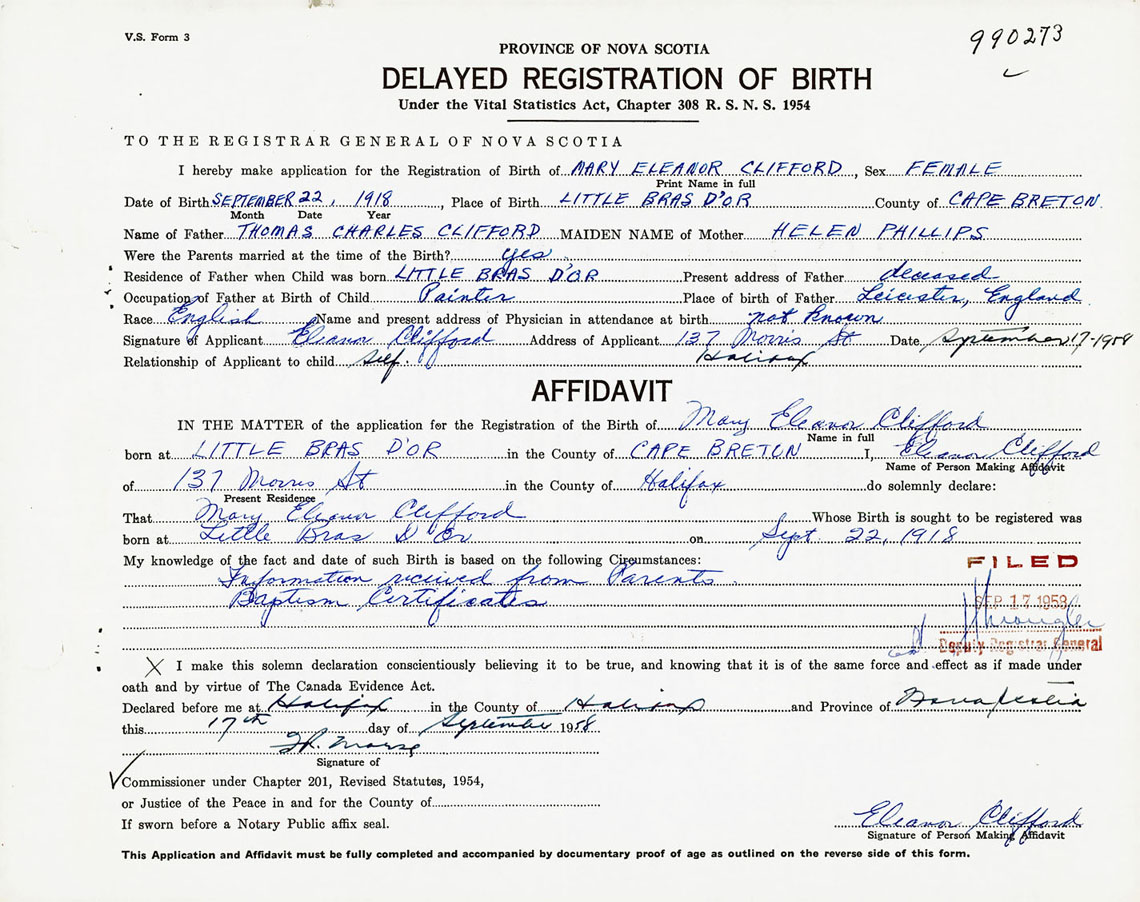 V.S. Form 3
990273
PROVINCE OF NOVA SCOTIA
DELAYED REGISTRATION OF BIRTH
Under the Vital Statistics Act, Chapter 308 R. S. N. S. 1954
TO THE REGISTRAR GENERAL OF NOVA SCOTIA
I hereby make application for the Registration of Birth of MARY ELEANOR CLIFFORD, Sex FEMALE
Print Name in full
Date of Birth SEPTEMBER 22, 1918, Place of Birth LITTLE BRAS D'OR County of CAPE BRETON
Month Date Year
Name of Father THOMAS CHARLES CLIFFORD MAIDEN NAME of Mother HELEN PHILLIPS
Were the Parents married at the time of the Birth? yes
Residence of Father when Child was born LITTLE BRAS D'OR Present address of Father deceased
Occupation of Father at Birth of Child Painter Place of birth of Father Leicester, England
Race English Name and present address of Physician in attendance at birth not known
Signature of Applicant Eleanor Clifford Address of Applicant 137 Morris St Date September 17-1958
Relationship of Applicant to child self. Halifax
AFFIDAVIT
IN THE MATTER of the application for the Registration of the Birth of Mary Eleanor Clifford
Name in full
born at LITTLE BRAS D'OR in the County of CAPE BRETON I, Eleanor Clifford
Name of Person Making Affidavit
of 137 Morris St in the County of Halifax do solemnly declare:
Present Residence
That Mary Eleanor Clifford Whose Birth is sought to be registered was
born at Little Bras D'Or on Sept. 22, 1918
My knowledge of the fact and date of such Birth is based on the following Circumstances:
Information received from Parents
Baptism Certificates
FILED
SEP 17 1958
Deputy Registrar General
X I make this solemn declaration conscientiously believing it to be true, and knowing that it is of the same force and effect as if made under
oath and by virtue of The Canada Evidence Act.
Declared before me at Halifax in the County of Halifax and Province of Nova Scotia
this 17th day of September 1958
Signature of
Commissioner under Chapter 201, Revised Statutes, 1954,
or Justice of the Peace in and for the County of
If sworn before a Notary Public affix seal.
Eleanor Clifford
Signature of Person Making Affidavit
This Application and Affidavit must be fully completed and accompanied by documentary proof of age as outlined on the reverse side of this form.